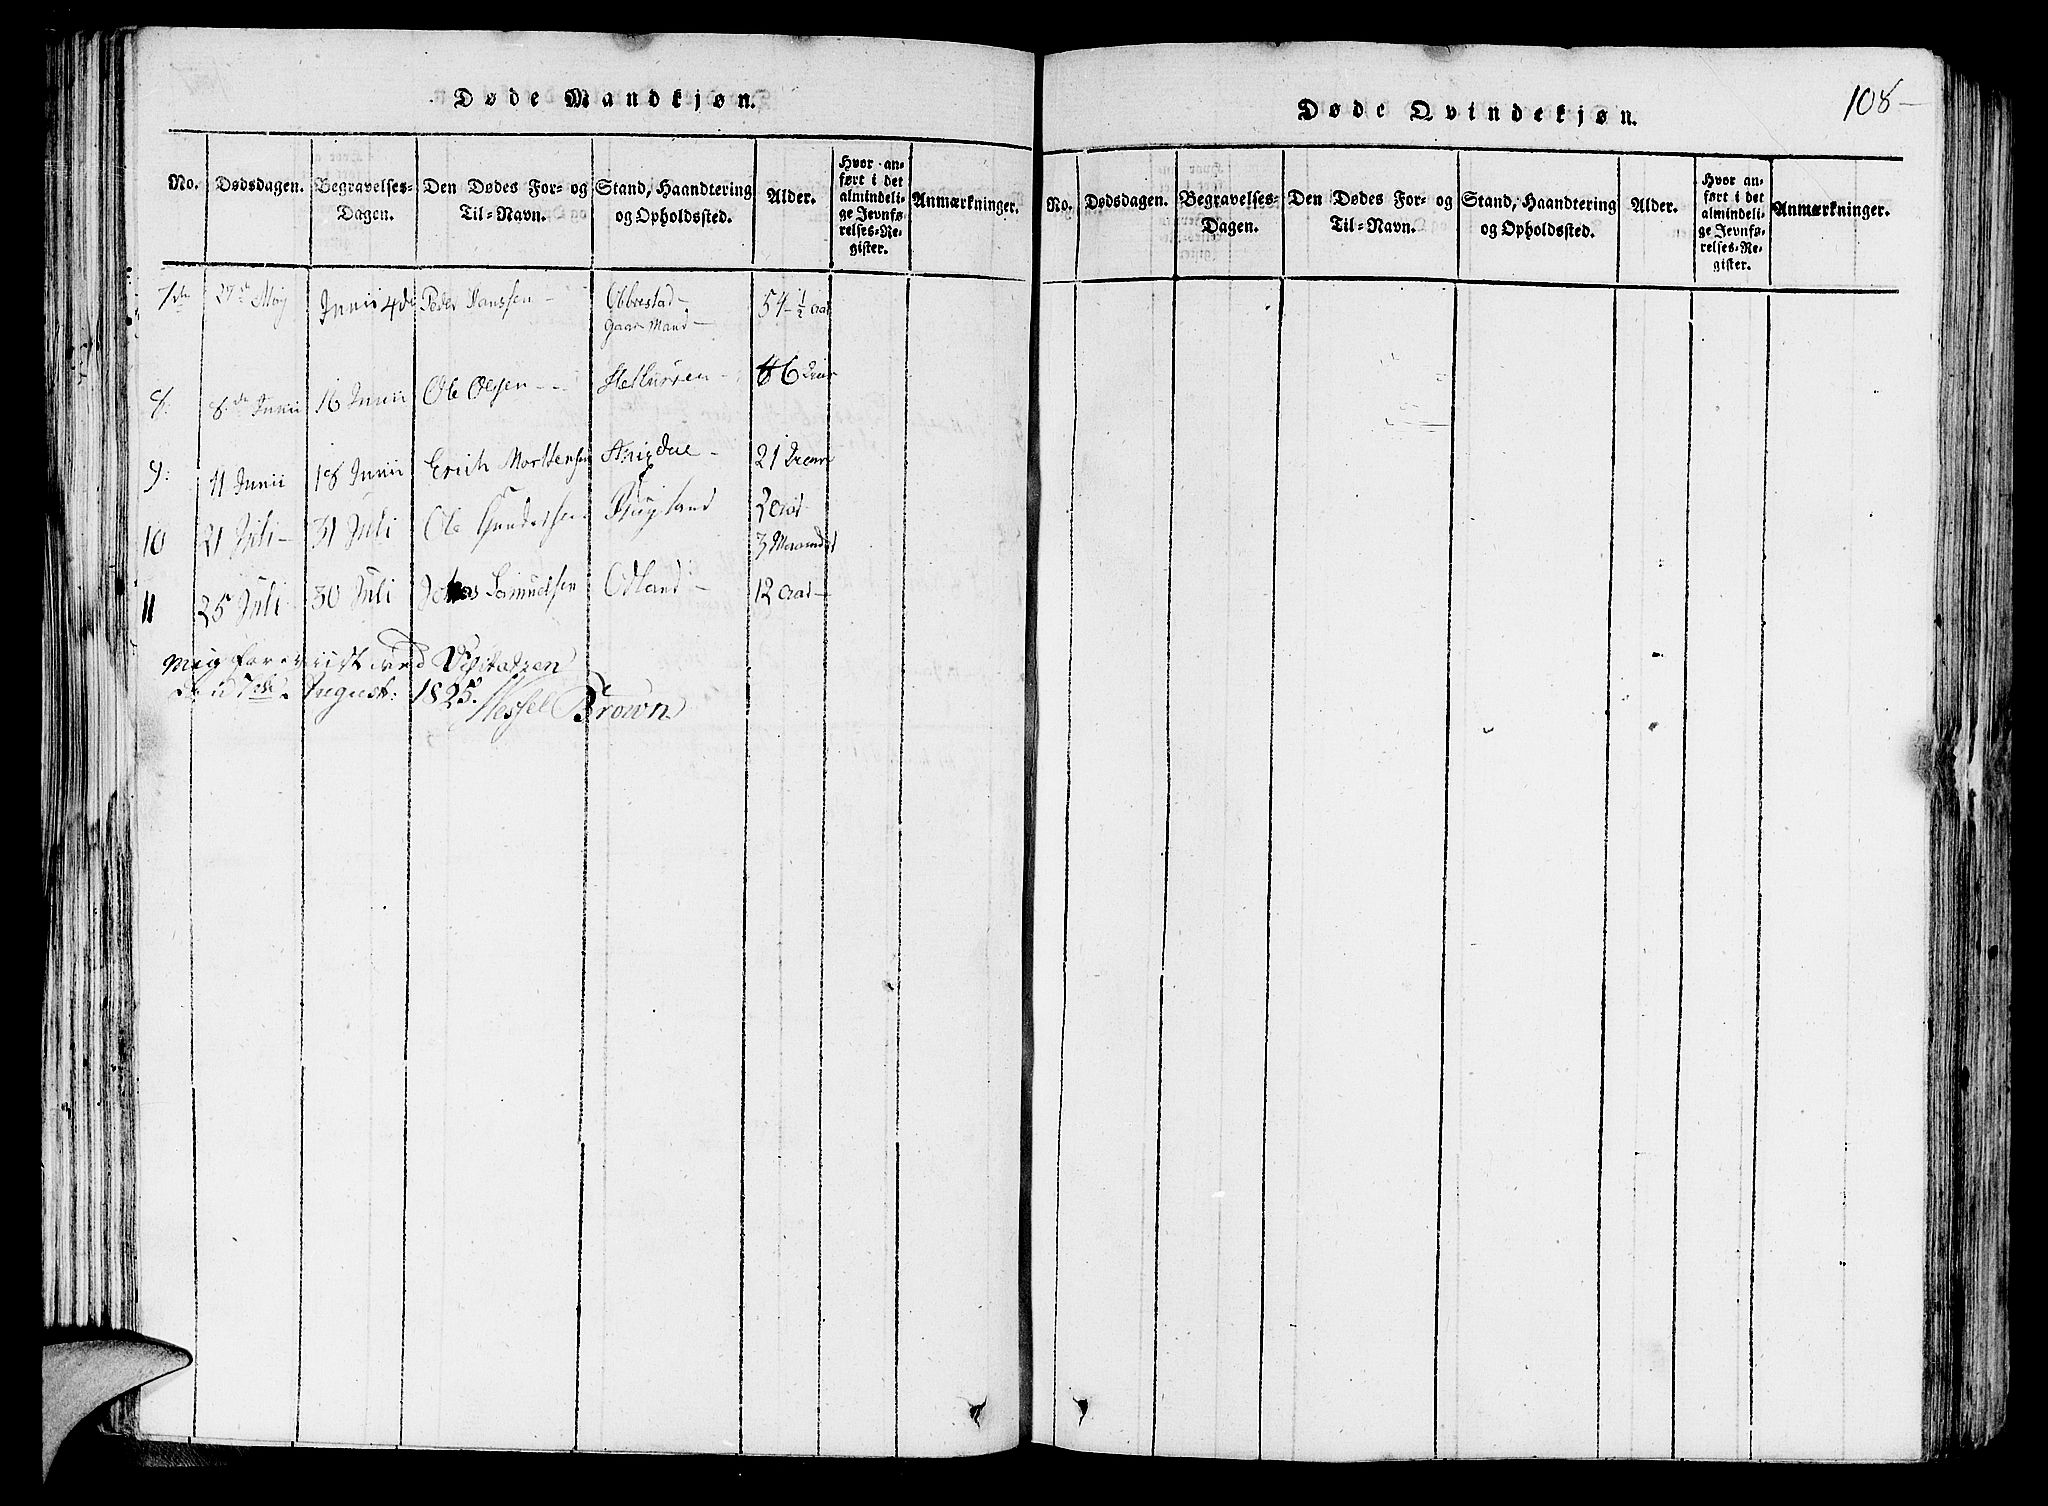 Døde Mandkjøn.
No. Dødsdagen. Begravelses-Dagen. Den Dødes For- og Til-Navn. Stand, Haandtering og Opholdssted. Alder. Hvor anført i det almindelige Jevnførelses-Register. Anmærkninger.
7de 27de Maj Junii 4de Peder Hanssen - Obbrestad - 54 - 1/2 aar
Gaar Mand -
8: 8de Junii 16 Junii Ole Olsen - - 46 aar
9: 11 Junii 18 Junii Erich Morttensen 21 
10 21 Juli - 31 Juli Ole Gundersen 2 aar
3 Maaneder
11 25 Juli 30 Juli Samuelsen Odland - 12 aar -
Mig foreviist ved Visitatzen
den 7de August: 1825. Hessel Brown.
Døde Qvindekjøn.
108 -
No. Dødsdagen. Begravelses-Dagen. Den Dødes For- og Til-Navn. Stand, Haandtering og Opholdssted. Alder. Hvor anført i det almindelige Jevnførelses-Register. Anmærkninger.